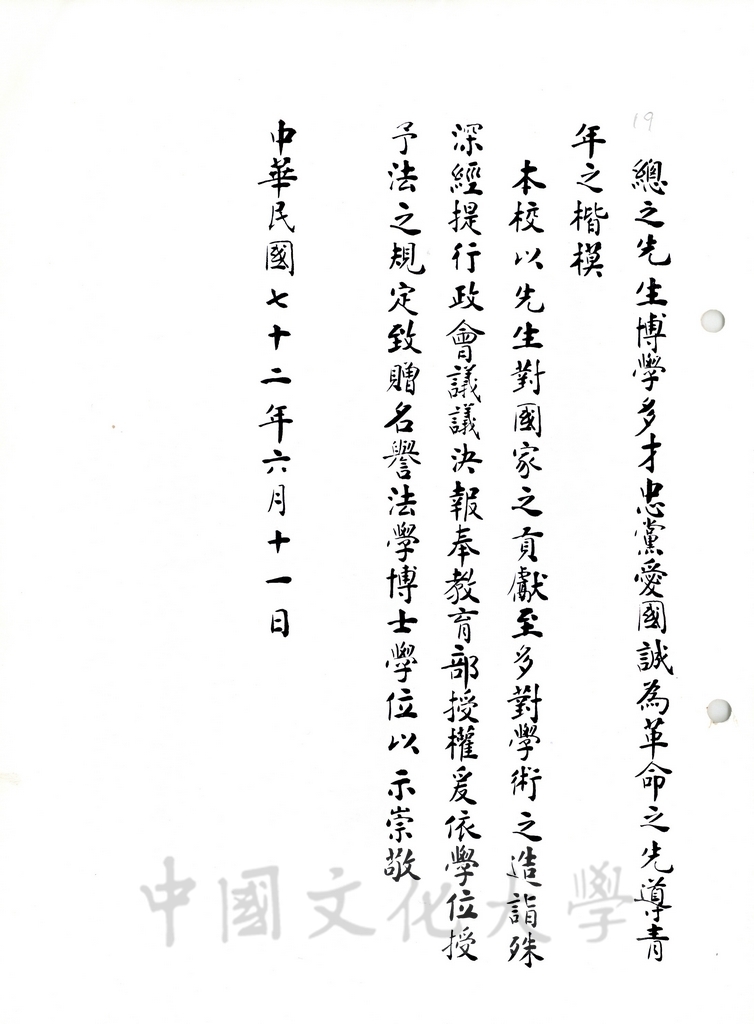 19
總之先生博學多才忠黨愛國誠為革命之先導青
年之楷模
本校以先生對國家之貢獻至多對學術之造詣殊
深經提行政會議議決報奉教育部授權爰依學位授
予法之規定致贈名譽法學博士學位以示崇敬
中華民國七十二年六月十一日
中國文化大學